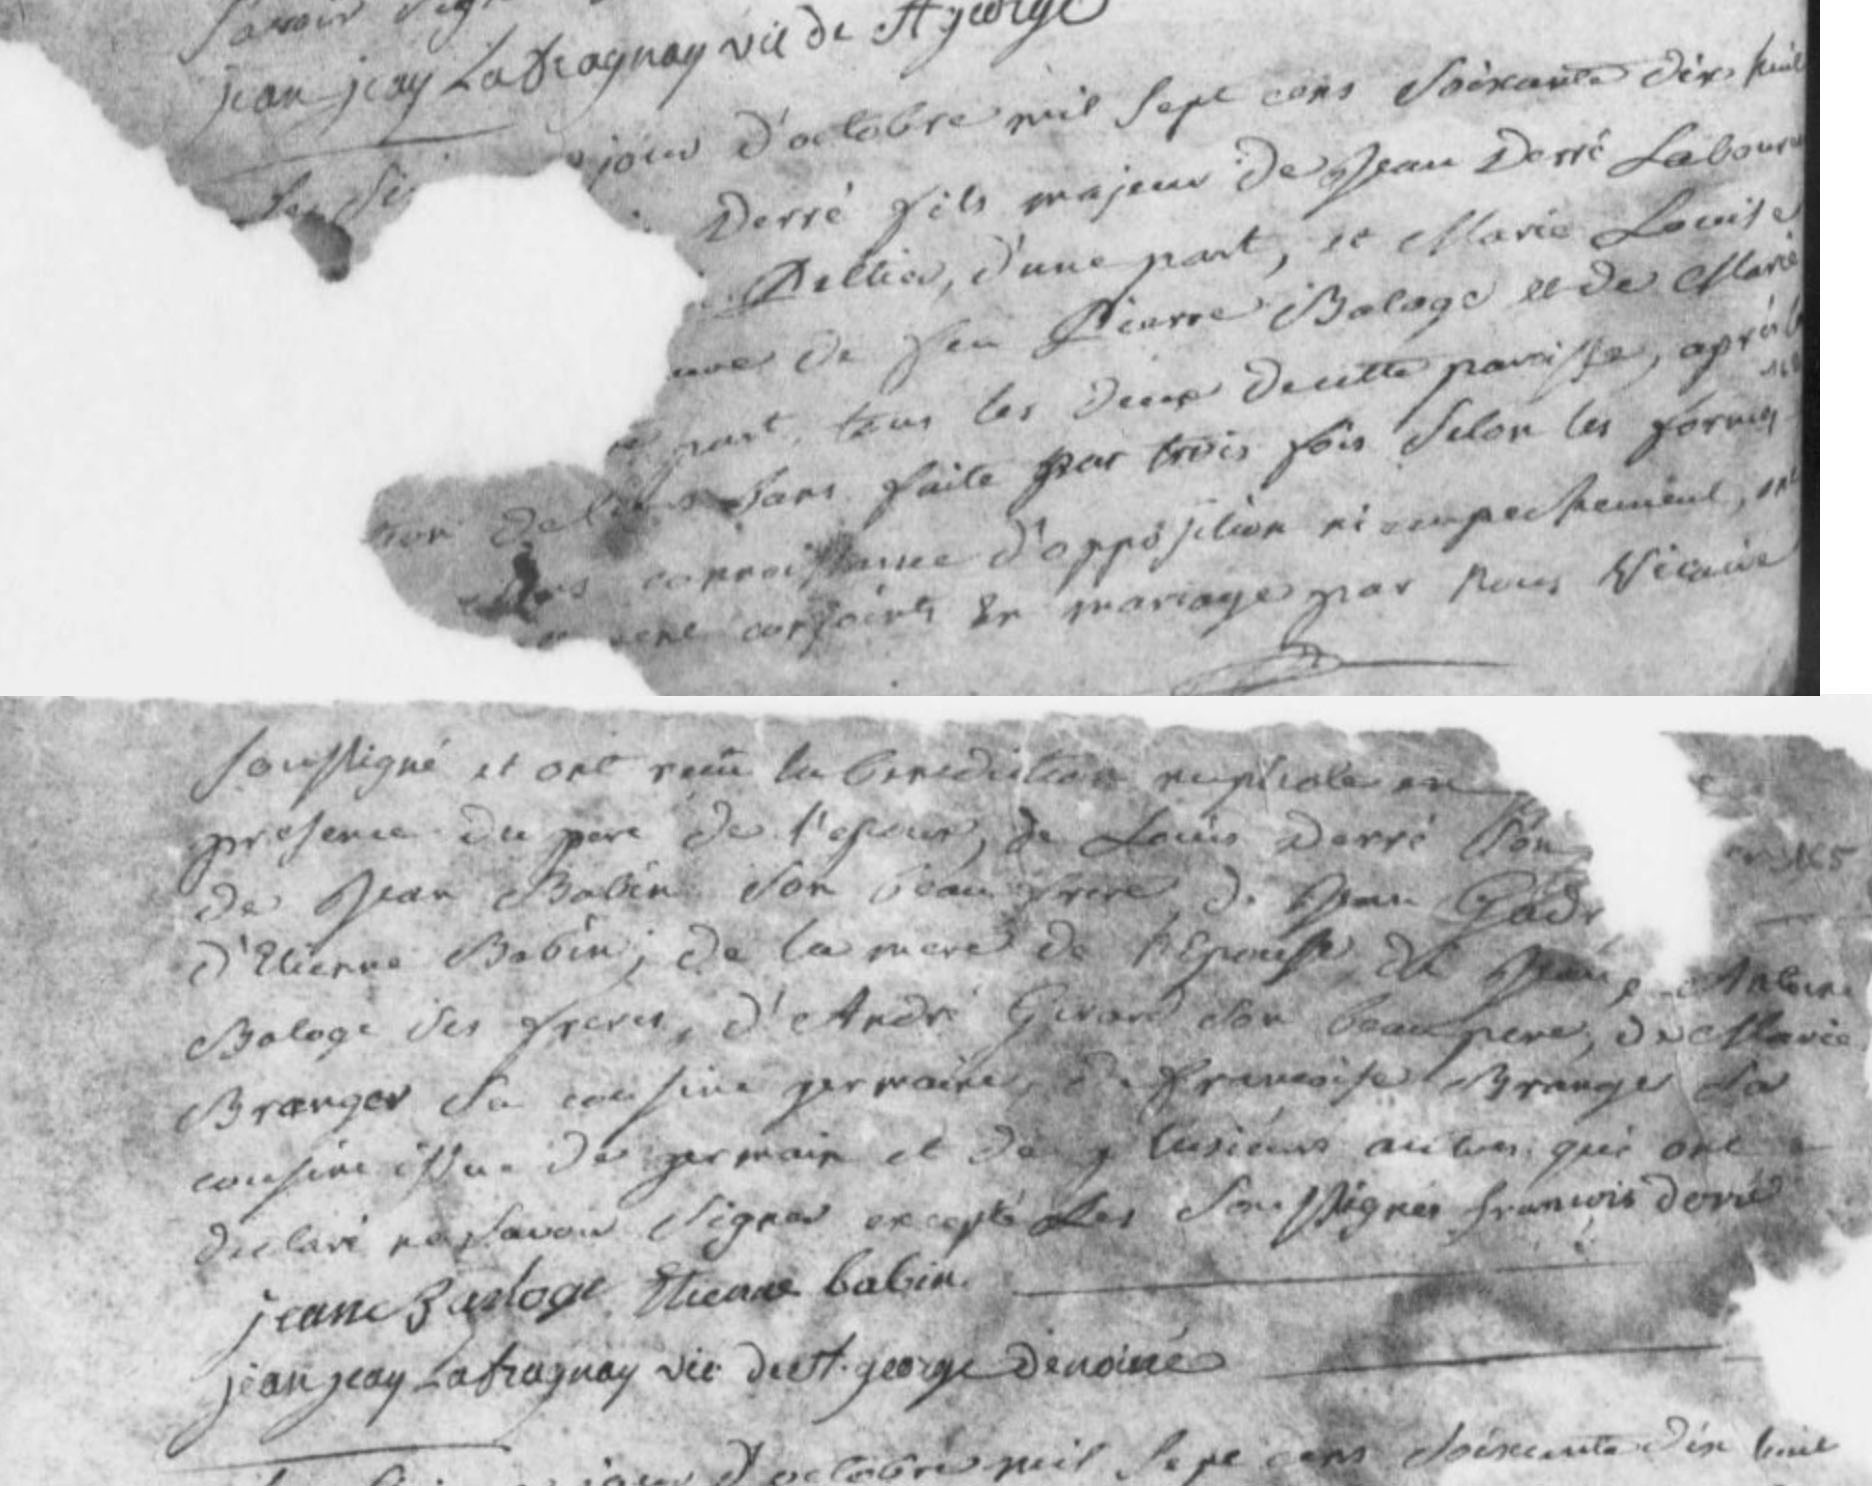 savoir sign
jean jeay Lafragnay vic de St george
Le si jour d'octobre mil sept cens soixante dix huit
Derré fils majeur de Jean Derré Labour
Peltier, d'une part, et Marie Louise
de feu Pierre Baloge et de Marie
part, tous les deux de cette paroisse, après
de leurs bans faite par trois fois selon les formes
sans connoissance d'opposition ni empeschement, ont
conjoints En mariage par Nous Vicaire
soussigné et ont recu la benediction nuptiale en
presence du pere de l'epoux, de Louis Derré son
de Jean Babin son beau frere, de Jean
d'Etienne Babin; de la mere de l'Epouse, de Jean Antoine
Baloge ses freres, d'André Girard son beau pere, de Marie
Branger sa cousine germaine, de francoise Branger sa
cousine issue de germain et de plusieurs autres qui ont
declaré ne savoir signer excepté Les soussignés francois derré
jean Baloge Etienne babin.
jean jeay Lafragnay vic de St. george denoiné
jour d'octobre mil sept cens soixante dix huit